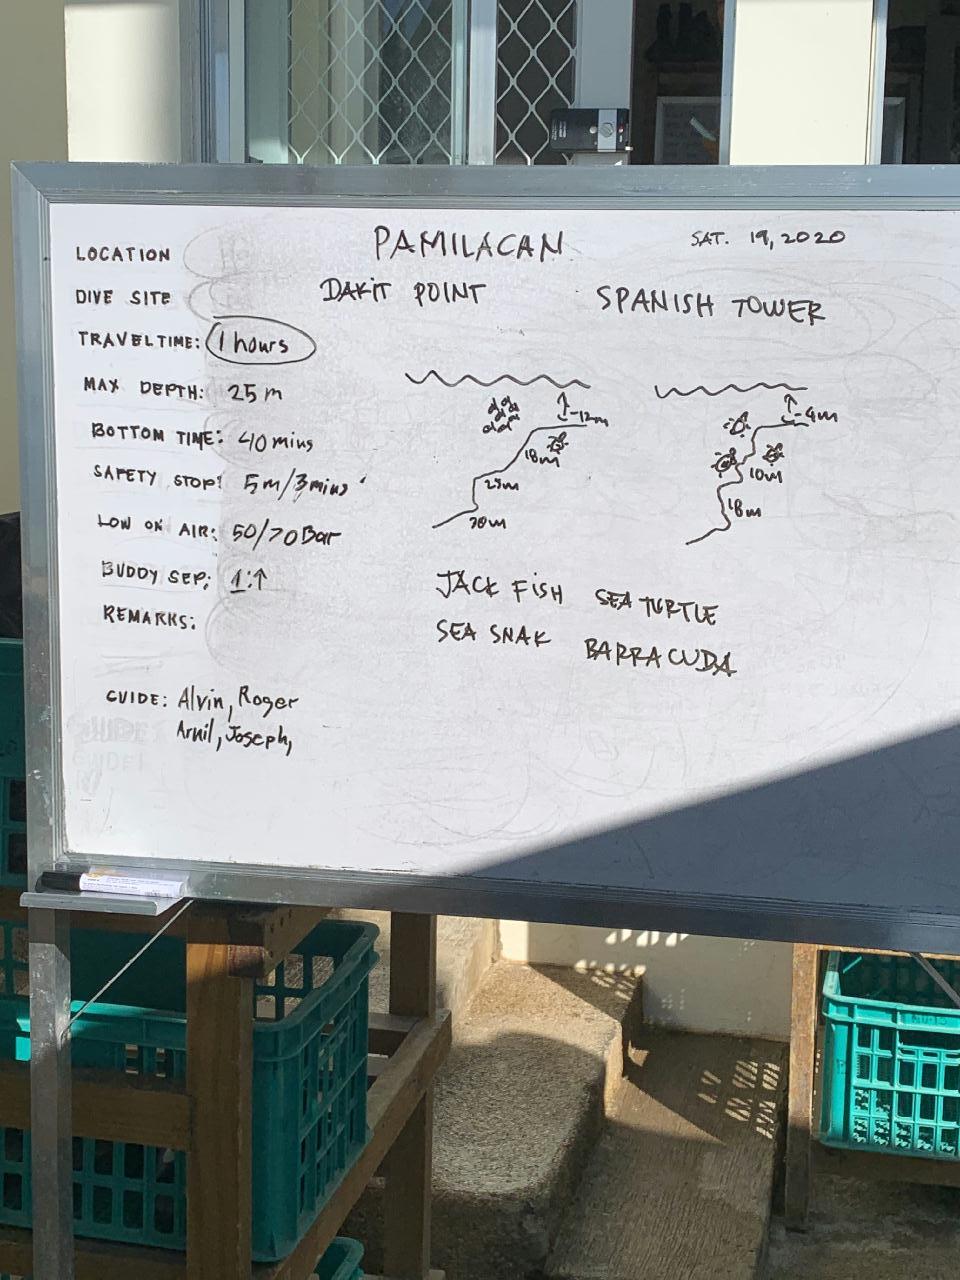 PAMILACAN
SAT. 19, 2020
LOCATION
DIVE SITE
DAKIT POINT
SPANISH TOWER
TRAVEL TIME: 1 hours
MAX DEPTH: 25 m
BOTTOM TIME: 40 mins
SAFETY STOP: 5m/3mins
LOW ON AIR: 50/70 Bar
BUDDY SEP: 1:↑
REMARKS:
GUIDE: Alvin, Roger
Arnil, Joseph,
-12m
18m
25m
-4m
10m
18m
JACK FISH SEA TURTLE
SEA SNAK BARRACUDA